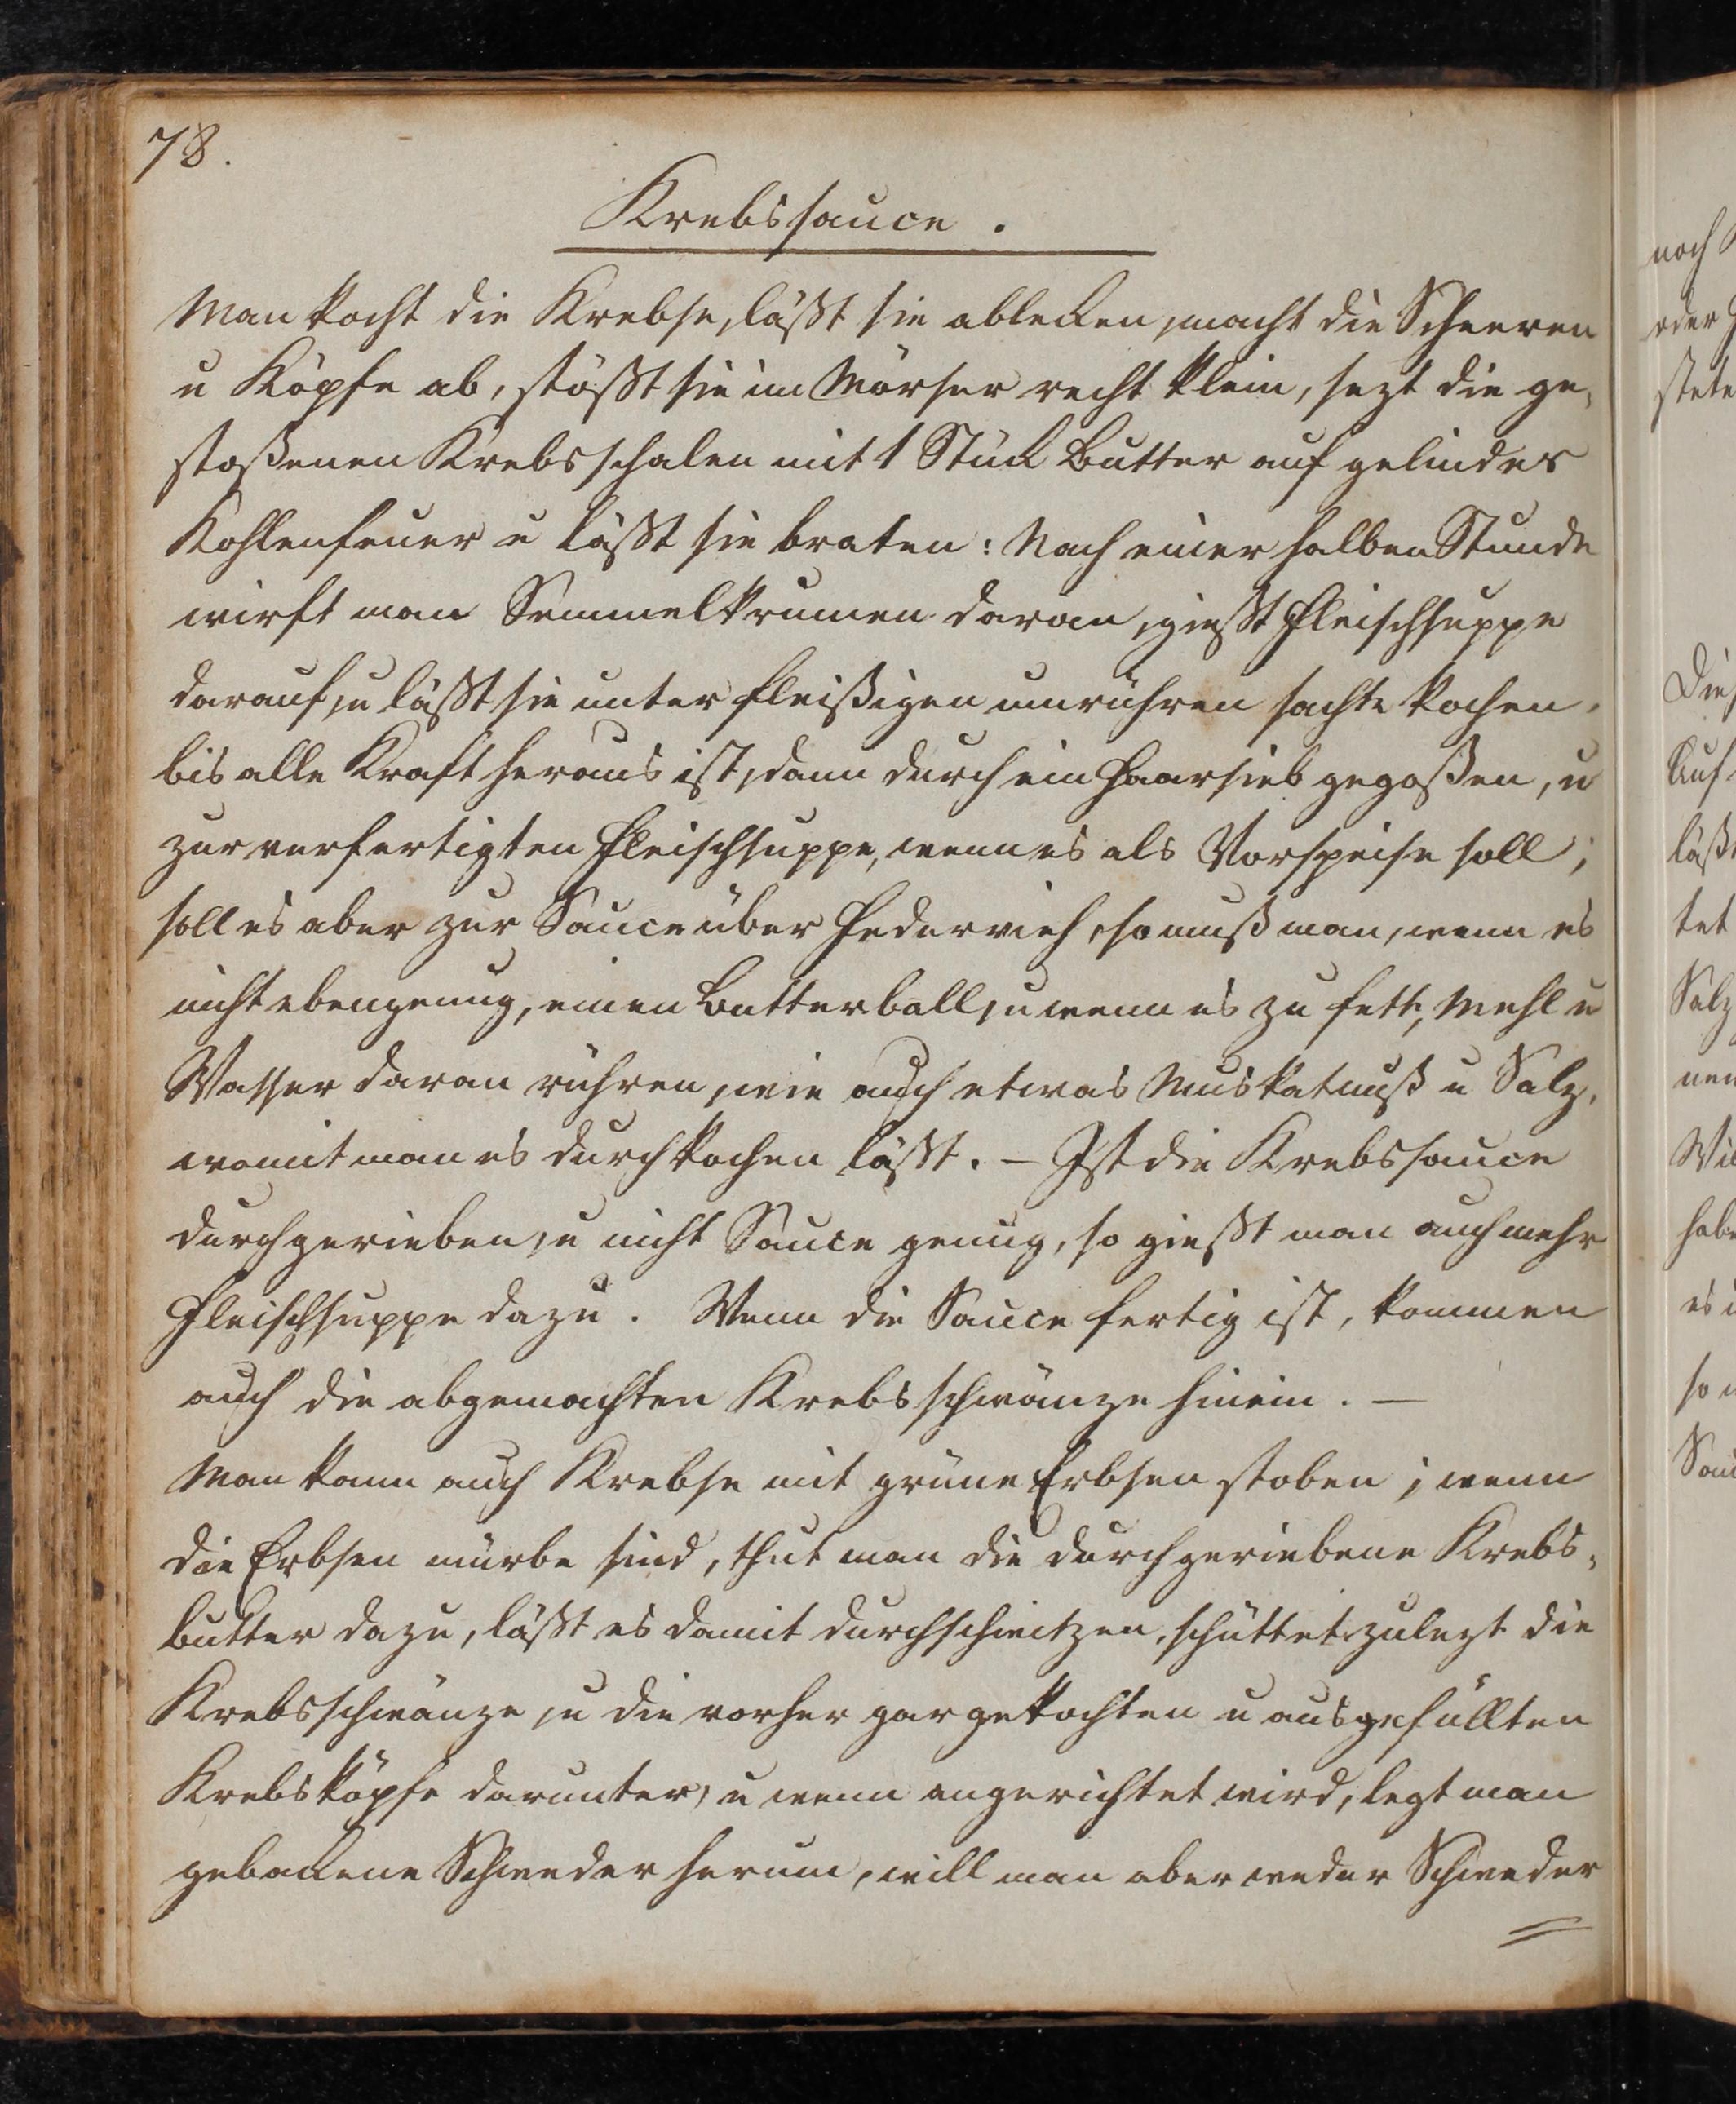 78.
Krebssauce.
Man kocht die Krebse, läßt sie ablecken, macht die Scheeren
u Köpfe ab, stößt sie im Mörser recht klein, sezt die ge-
stoßenen Krebsschalen mit 1 Stück Butter auf gelindes
Kohlenfeuer u läßt sie braten: Nach einer halben Stunde
wirft man Semmelkrumen daran, gießt Fleischsuppe
darauf, u läßt sie unter fleißigen umrühren sachte kochen,
bis alle Kraft heraus ist, dann durch ein Haarsieb gegoßen, u
zur verfertigten Fleischsuppe, wenn es als Vorspeise soll;
soll es aber zur Sauce über Federvieh, so muß man, wenn es
nicht ebengenug, einen Butterball, u wenn es zu fett, Mehl u
Wasser daran rühren, wie auch etwas Muskatnuß u Salz,
womit man es durchkochen läßt. – Ist die Krebssauce
durchgerieben, u nicht Sauce genug, so gießt man auch mehr
Fleischsuppe dazu. Wenn die Sauce fertig ist, kommen
auch die abgemachten Krebsschwänze hinein. –
Man kann auch Krebse mit grüne Erbsen stoben; wenn
die Erbsen mürbe sind, thut man die durchgeriebene Krebs-
butter dazu, läßt es damit durchschwitzen, schüttet zulezt die
Krebsschwänze, u die vorher gar gekochten u ausgefüllten
Krebsköpfe darunter, u wenn angerichtet wird, legt man
gebackene Schweder herum, will man aber weder Schweder
noch
oder
stete
Die
Auf
läßt
tet
Salz
nen
habe
es
so